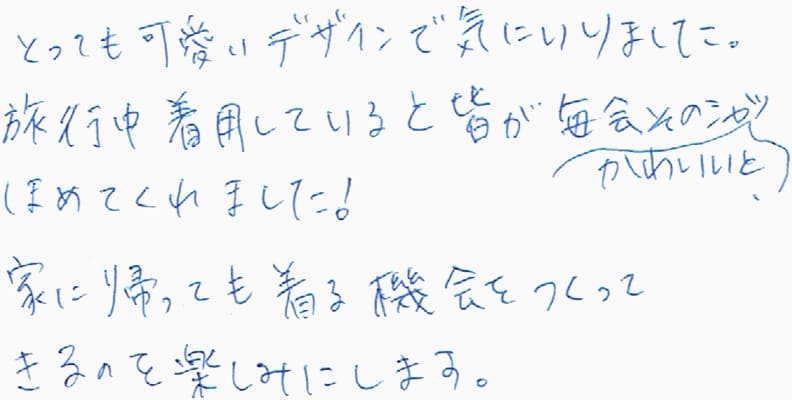 とっても可愛いデザインで気にいりました。
旅行中着用していると皆が毎会その
かわいいと
ほめてくれました!
家に帰っても着る機会をつくって
きるのを楽しみにします。